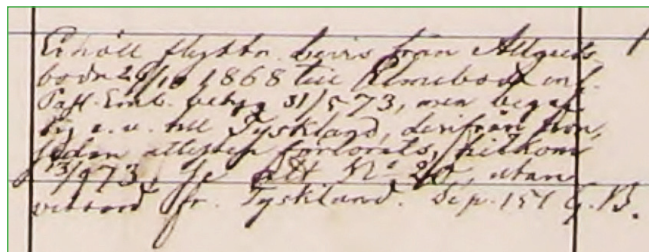 Erhöll flyttn. bevis från Allguds-
boda 29/10 1868 till Elmeboda enl.
Past. Emb. betyg 31/5 73, men begaf
sig e. u. till Tyskland, derifrån hon,
sedan attesten förlorats, hitkom
13/9 73, se att No 20, utan
fr. Tyskland. Dep. 151 G.B.